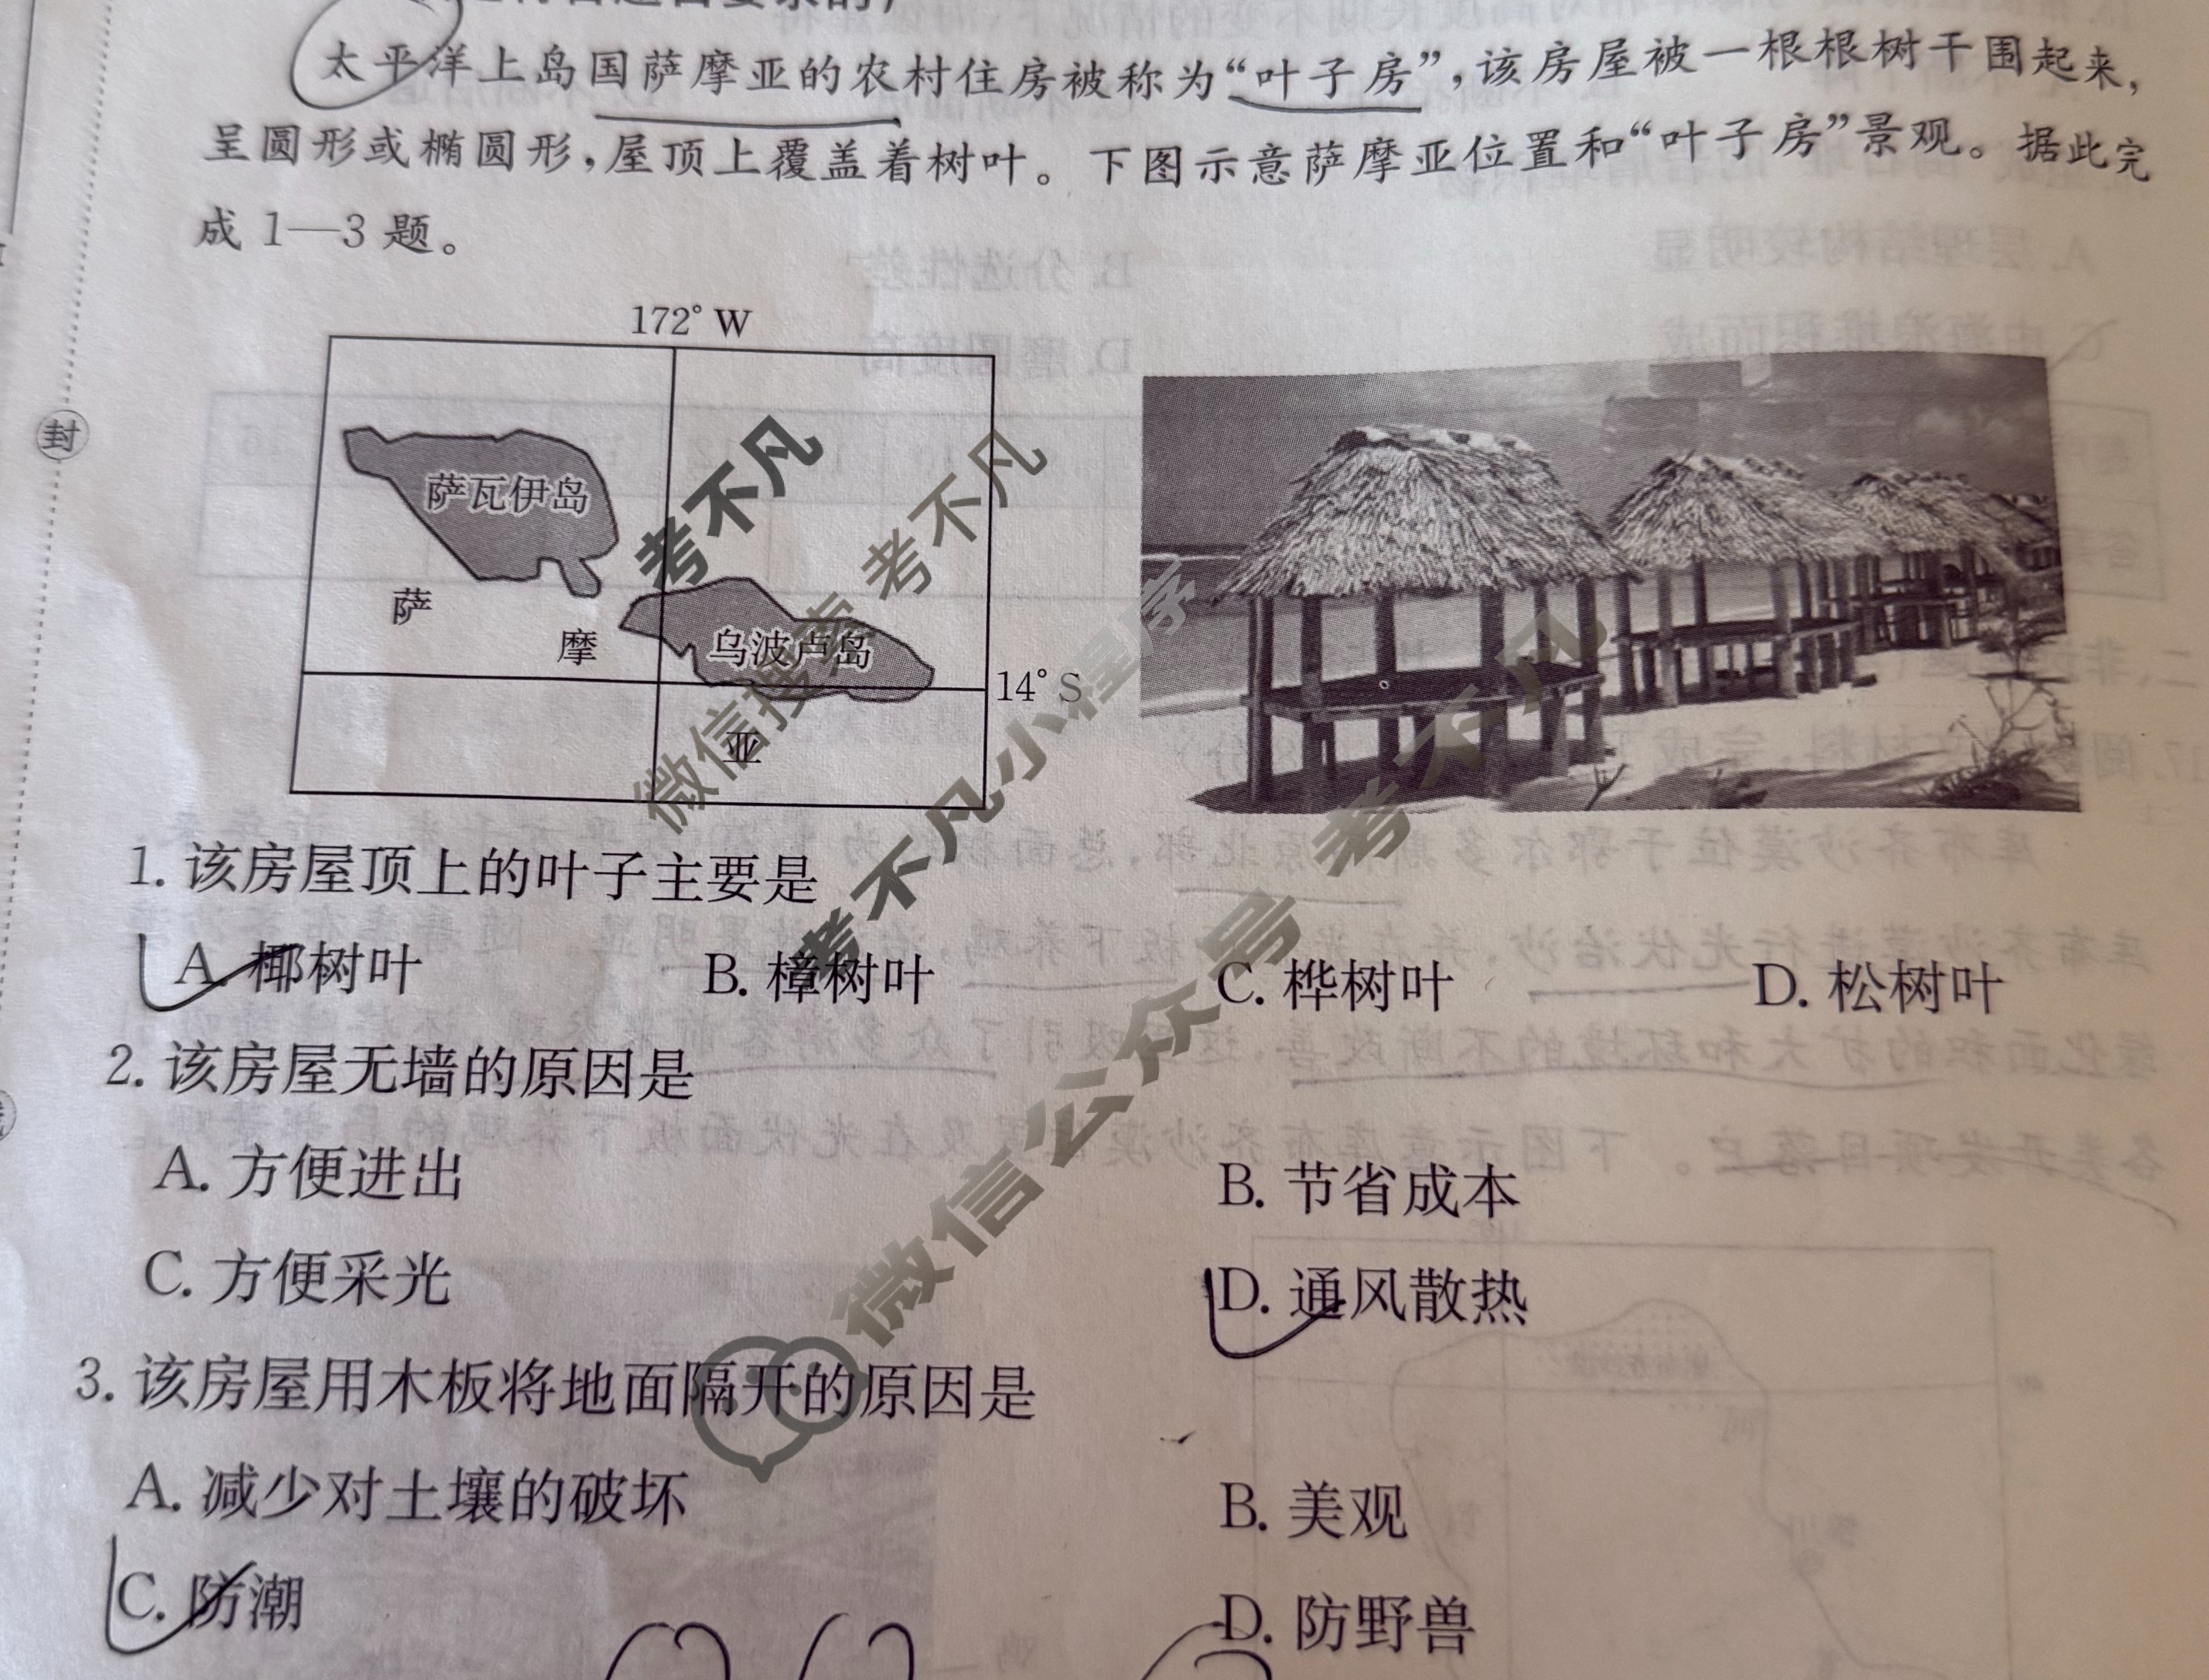 太平洋上岛国萨摩亚的农村住房被称为“叶子房”，该房屋被一根根树干围起来，
呈圆形或椭圆形，屋顶上覆盖着树叶。下图示意萨摩亚位置和“叶子房”景观。据此完
成 1—3 题。
172° W
封
萨瓦伊岛
萨
摩
亚
乌波卢岛
14° S
考不凡
考不凡
微信搜索
考不凡小程序
考不凡
微信公众号 考不凡
1. 该房屋顶上的叶子主要是
A. 椰树叶 B. 樟树叶 C. 桦树叶 D. 松树叶
2. 该房屋无墙的原因是
A. 方便进出 B. 节省成本
C. 方便采光 D. 通风散热
3. 该房屋用木板将地面隔开的原因是
A. 减少对土壤的破坏 B. 美观
C. 防潮 D. 防野兽